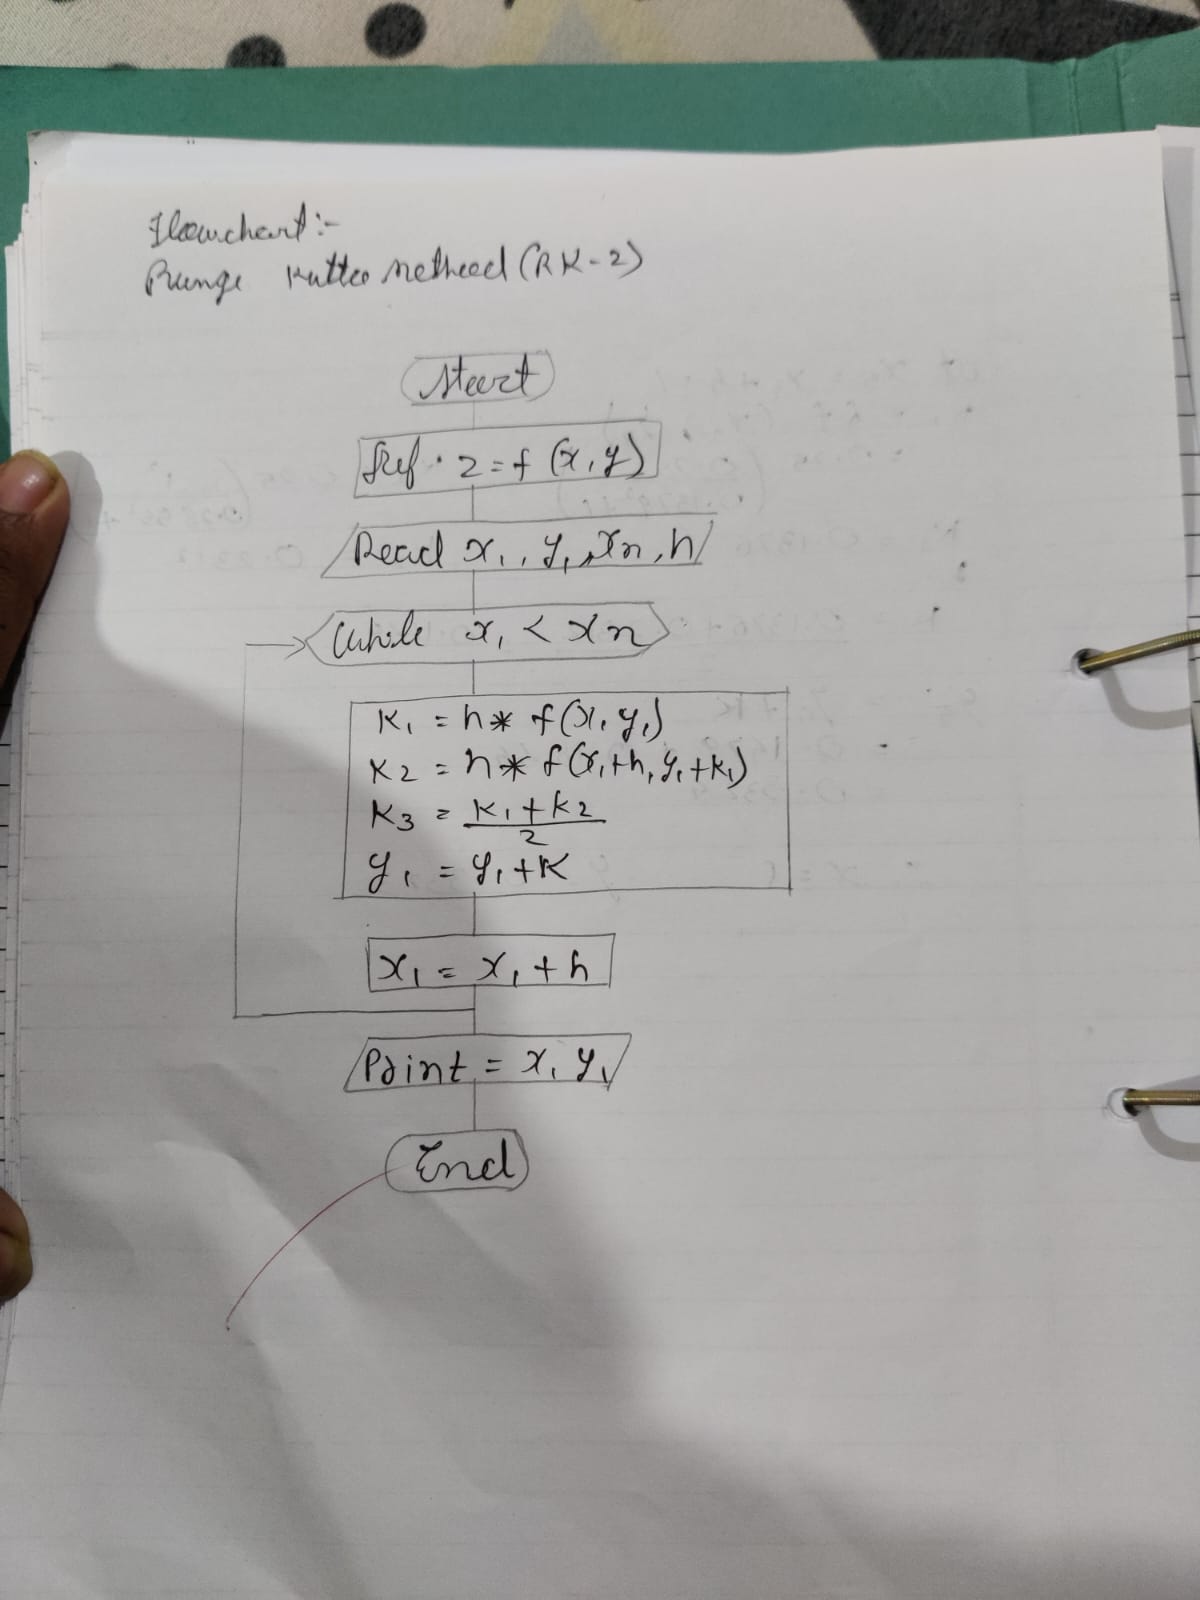 Flowchart:-
Runge Kutta Method (RK-2)
Start
Def. z = f (x, y)
Read x₁, y₁, xn, h
While x₁ < xn
K₁ = h * f(x₁, y₁)
K₂ = h * f(x₁+h, y₁+k₁)
K₃ = (K₁+k₂)/2
y₁ = y₁+K
x₁ = x₁ + h
Print = x₁ y₁
End